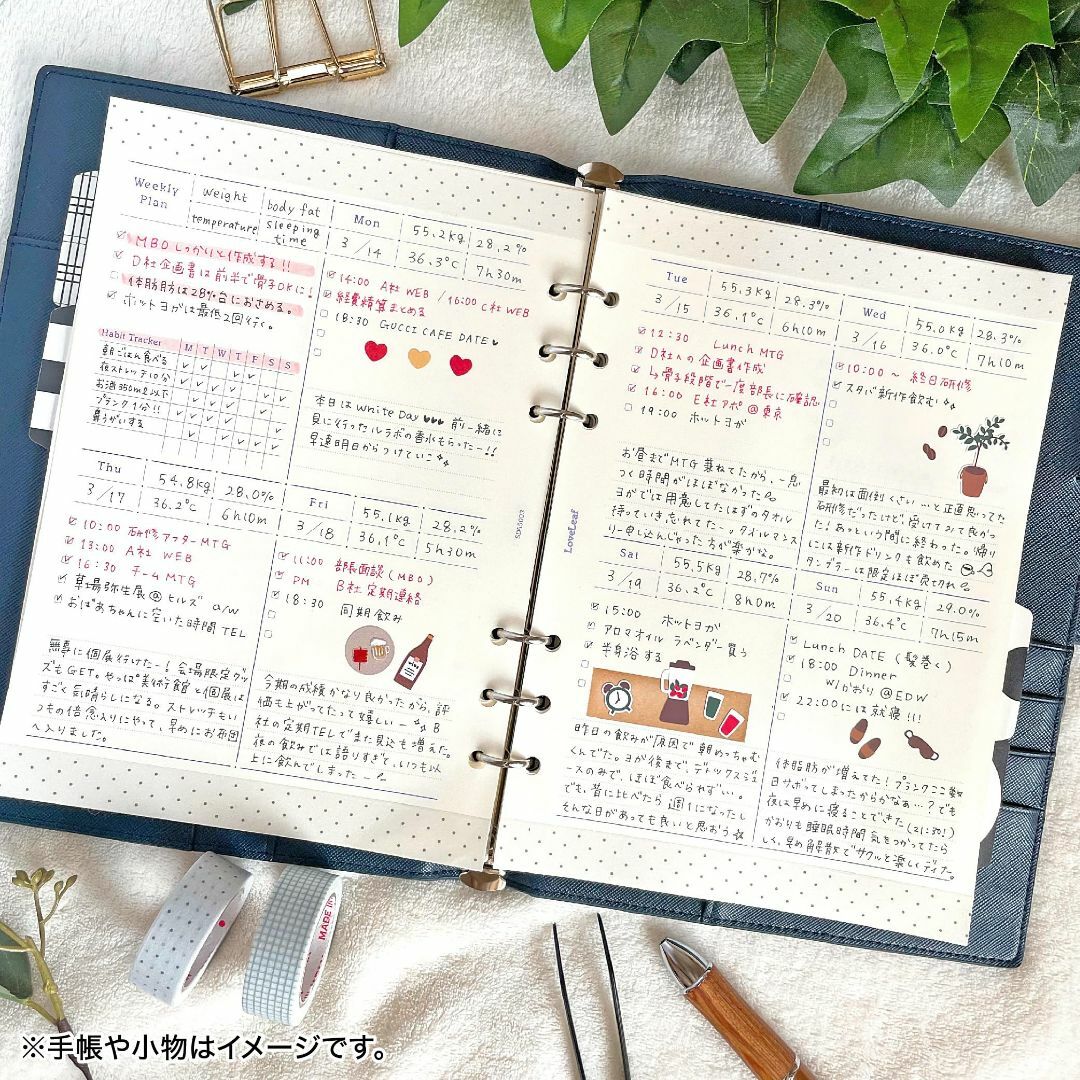 Weekly Plan
weight
body fat
temperature
sleeping time
MBOしっかりと作成する!!
D社企画書は前半で骨子OKに!
体脂肪は28%台におさめる。
ホットヨガは最低2回行く。
Habit Tracker M T W T F S S
朝ごはん食べる
夜ストレッチ10分
お酒350ml以下
プランク1分!!
鼻うがいする
Mon 55.2kg 28.2%
3/14 36.3℃ 7h30m
14:00 A社 WEB / 16:00 C社 WEB
経費精算まとめる
18:30 GUCCI CAFE DATE♥
本日は White Day ♥♥♥ 前一緒に
見に行ったルラボの香水もらったー!!
早速明日からつけていこ
Thu 54.8kg 28.0%
3/17 36.2℃ 6h10m
10:00 研修アフターMTG
13:00 A社 WEB
16:30 チームMTG
草場弥生展@ヒルズ a/w
おばあちゃんに空いた時間 TEL
無事に個展行けたー! 会場限定グッ
ズもGET。やっぱ美術館と個展は
すごく気晴らしになる。ストレッチもい
つもの倍念入りにやって、早めにお布団
へ入りました。
Fri 55.1kg 28.2%
3/18 36.1℃ 5h30m
11:00 部長面談(MBO)
PM B社定期連絡
18:30 同期飲み
今期の成績かなり良かったから、評
価も上がってたって嬉しいー B
社の定期TELでまた見込も増えた。
夜の飲みでは語りすぎて、いつも以
上に飲んでしまったー
SDS5003
LoveLeaf
Tue 55.3kg 28.3%
3/15 36.1℃ 6h10m
12:30 Lunch MTG
D社への企画書作成
↳骨子段階で一度部長に確認
16:00 E社アポ@東京
19:00 ホットヨガ
お昼までMTG兼ねてたから、一息
つく時間がほぼなかった
ヨガでは用意してたはずのタオル
持っていき忘れてたー。タイルマンス
リー申し込んじゃった方が楽かな。
Wed 55.0kg 28.3%
3/16 36.0℃ 7h10m
10:00〜 終日研修
スタバ新作飲む
最初は面倒くさい…と正直思ってた
研修だったけど、受けてみて良かっ
た!あっという間に終わった。帰り
には新作ドリンクも飲めた
タンブラーは限定ほぼ売てくれ
Sat 55.5kg 28.7%
3/19 36.2℃ 8h0m
15:00 ホットヨガ
アロマオイル ラベンダー買う
半身浴する
昨日の飲みが原因で朝めっちゃむ
くんでた。ヨガ後まで、デトックスジュ
ースのみで、ほぼ食べられず…。
でも、昔に比べたら週1になったし
そんな日があっても良いと思おう☆
Sun 55.4kg 29.0%
3/20 36.4℃ 7h15m
Lunch DATE(髪巻く)
18:00 Dinner
w/かおり @EDW
22:00には就寝!!!
体脂肪が増えてた! プランクここ数
日サボってしまったからかなぁ…? でも
夜は早めに寝ることできた(21:30!)
かおりも睡眠時間気をつかってたら
しく、早め解散でサクッと楽しくディナー。
MADE IN
※手帳や小物はイメージです。